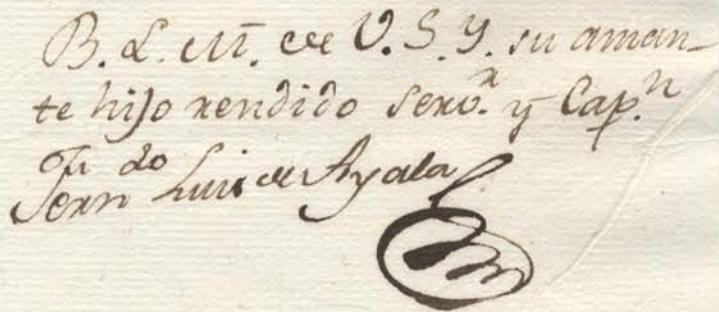 B. L. M. de V. S. Y. su aman-
te hijo rendido Serv.r y Cap.n
Fern.do Luis de Ayala